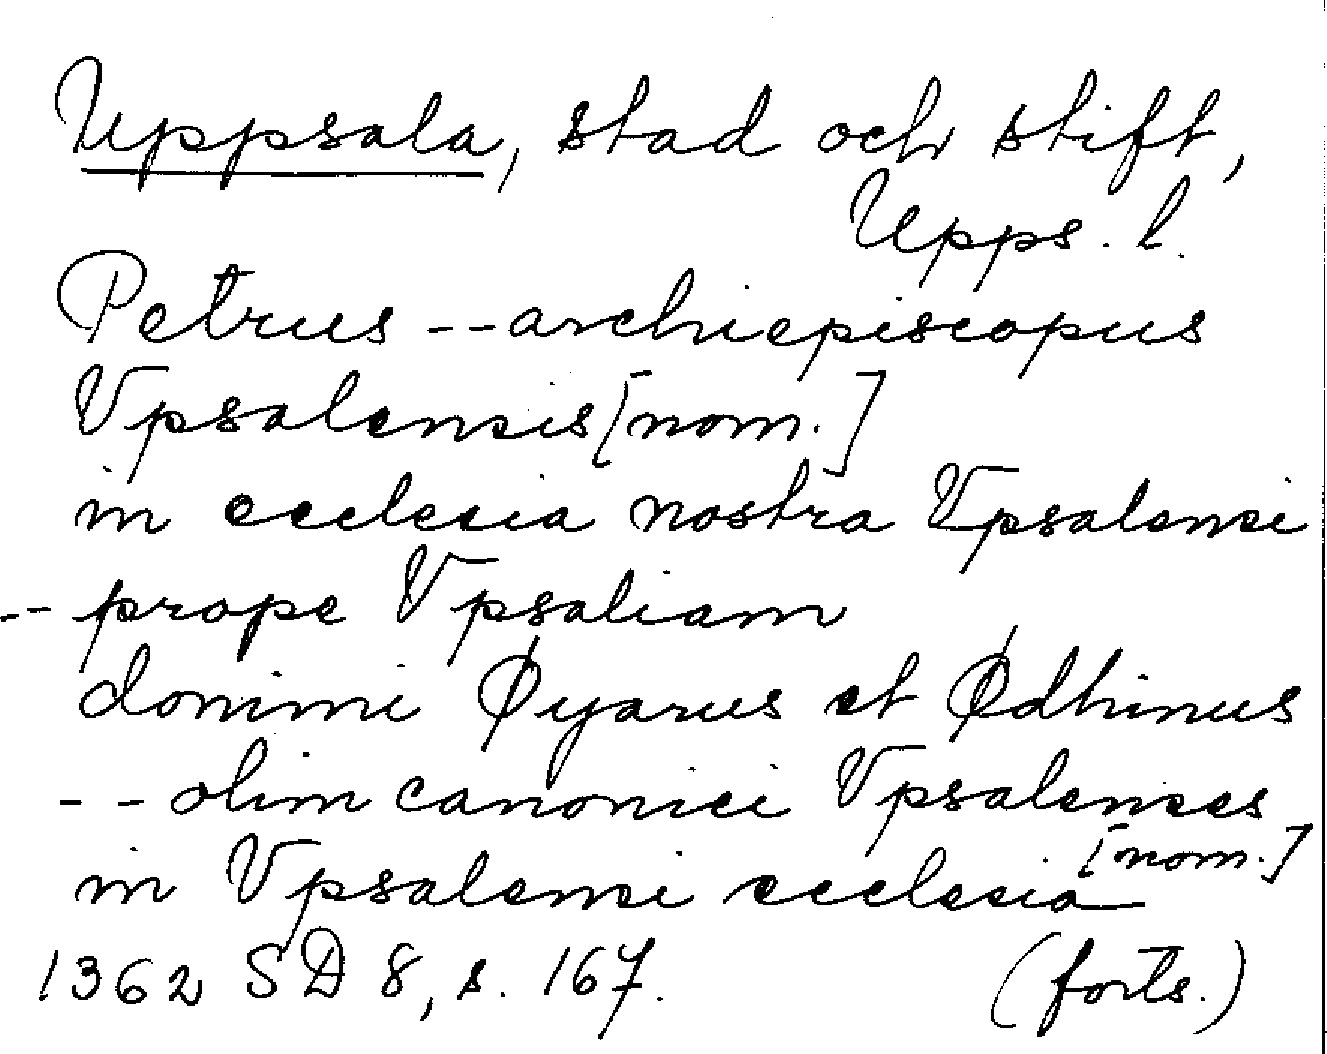 Uppsala, stad och stift,
Upps. l.
Petrus -- archiepiscopus
Vpsalensis [nom.]
in ecclesia nostra Vpsalensi
-- prope Vpsaliam
domini Øyarus et Ødhinus
-- olim canonici Vpsalenses
[nom.]
in Vpsalensi ecclesia
1362 SD 8, s. 167. (forts.)